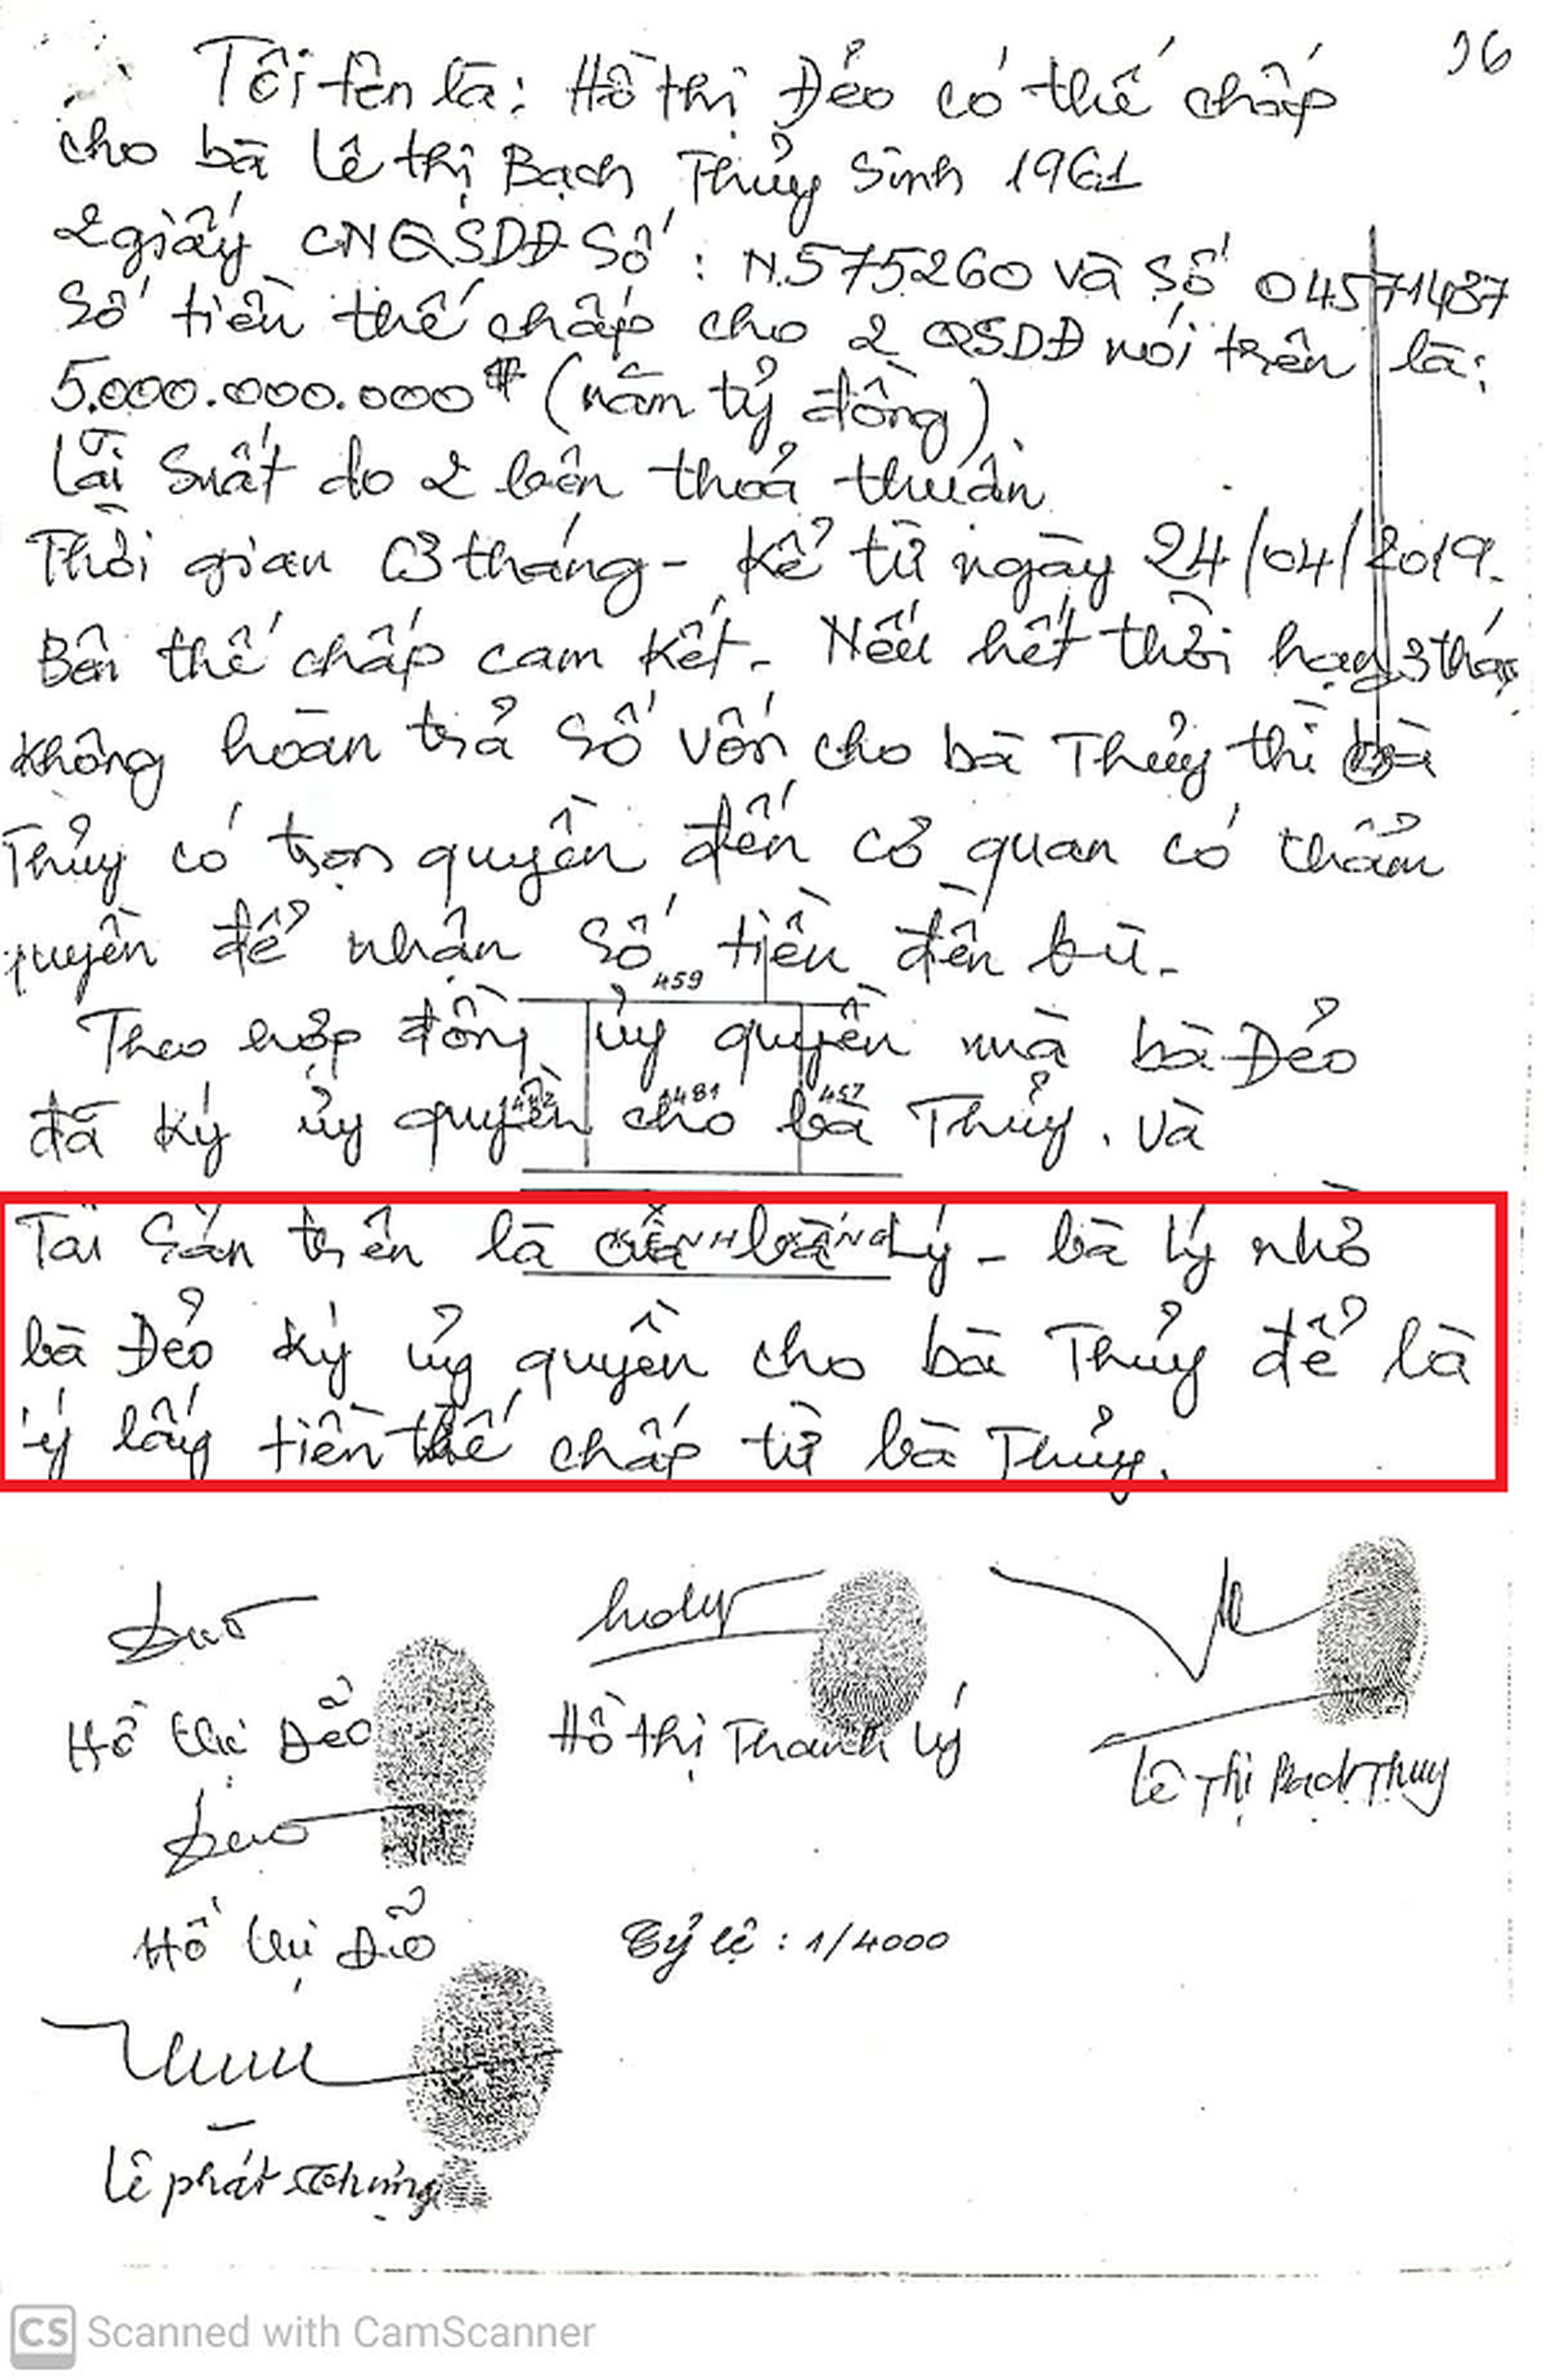 96
Tôi tên là: Hồ thị Đẻo có thế chấp
cho bà Lê thị Bạch Thủy Sinh 1961
2 giấy CNQSDĐ Số: N.575260 và Số 04571487
Số tiền thế chấp cho 2 QSDĐ nói trên là:
5.000.000.000đ (năm tỷ đồng).
Lãi Suất do 2 bên thoả thuận
Thời gian 03 tháng - Kể từ ngày 24/04/2019.
Bên thế chấp cam kết. Nếu hết thời hạn 3 thág
không hoàn trả Số vốn cho bà Thủy thì bà
Thủy có trọn quyền đến cơ quan có thẩm
quyền để nhận Số tiền đền bù.
459
Theo hợp đồng ủy quyền mà bà Đẻo
481 457
đã ký ủy quyền cho bà Thủy. và
Tài Sản trên là của bà Lý - bà Lý nhờ
bà Đẻo ký ủy quyền cho bà Thủy để là
lý lấy tiền thế chấp từ bà Thủy.
Hồ thị Đẽo
Hồ thị Thanh Lý
Lê Thị Bạch Thủy
Hồ thị Đẽo
Tỷ lệ: 1/4000
Lê phát
CS Scanned with CamScanner